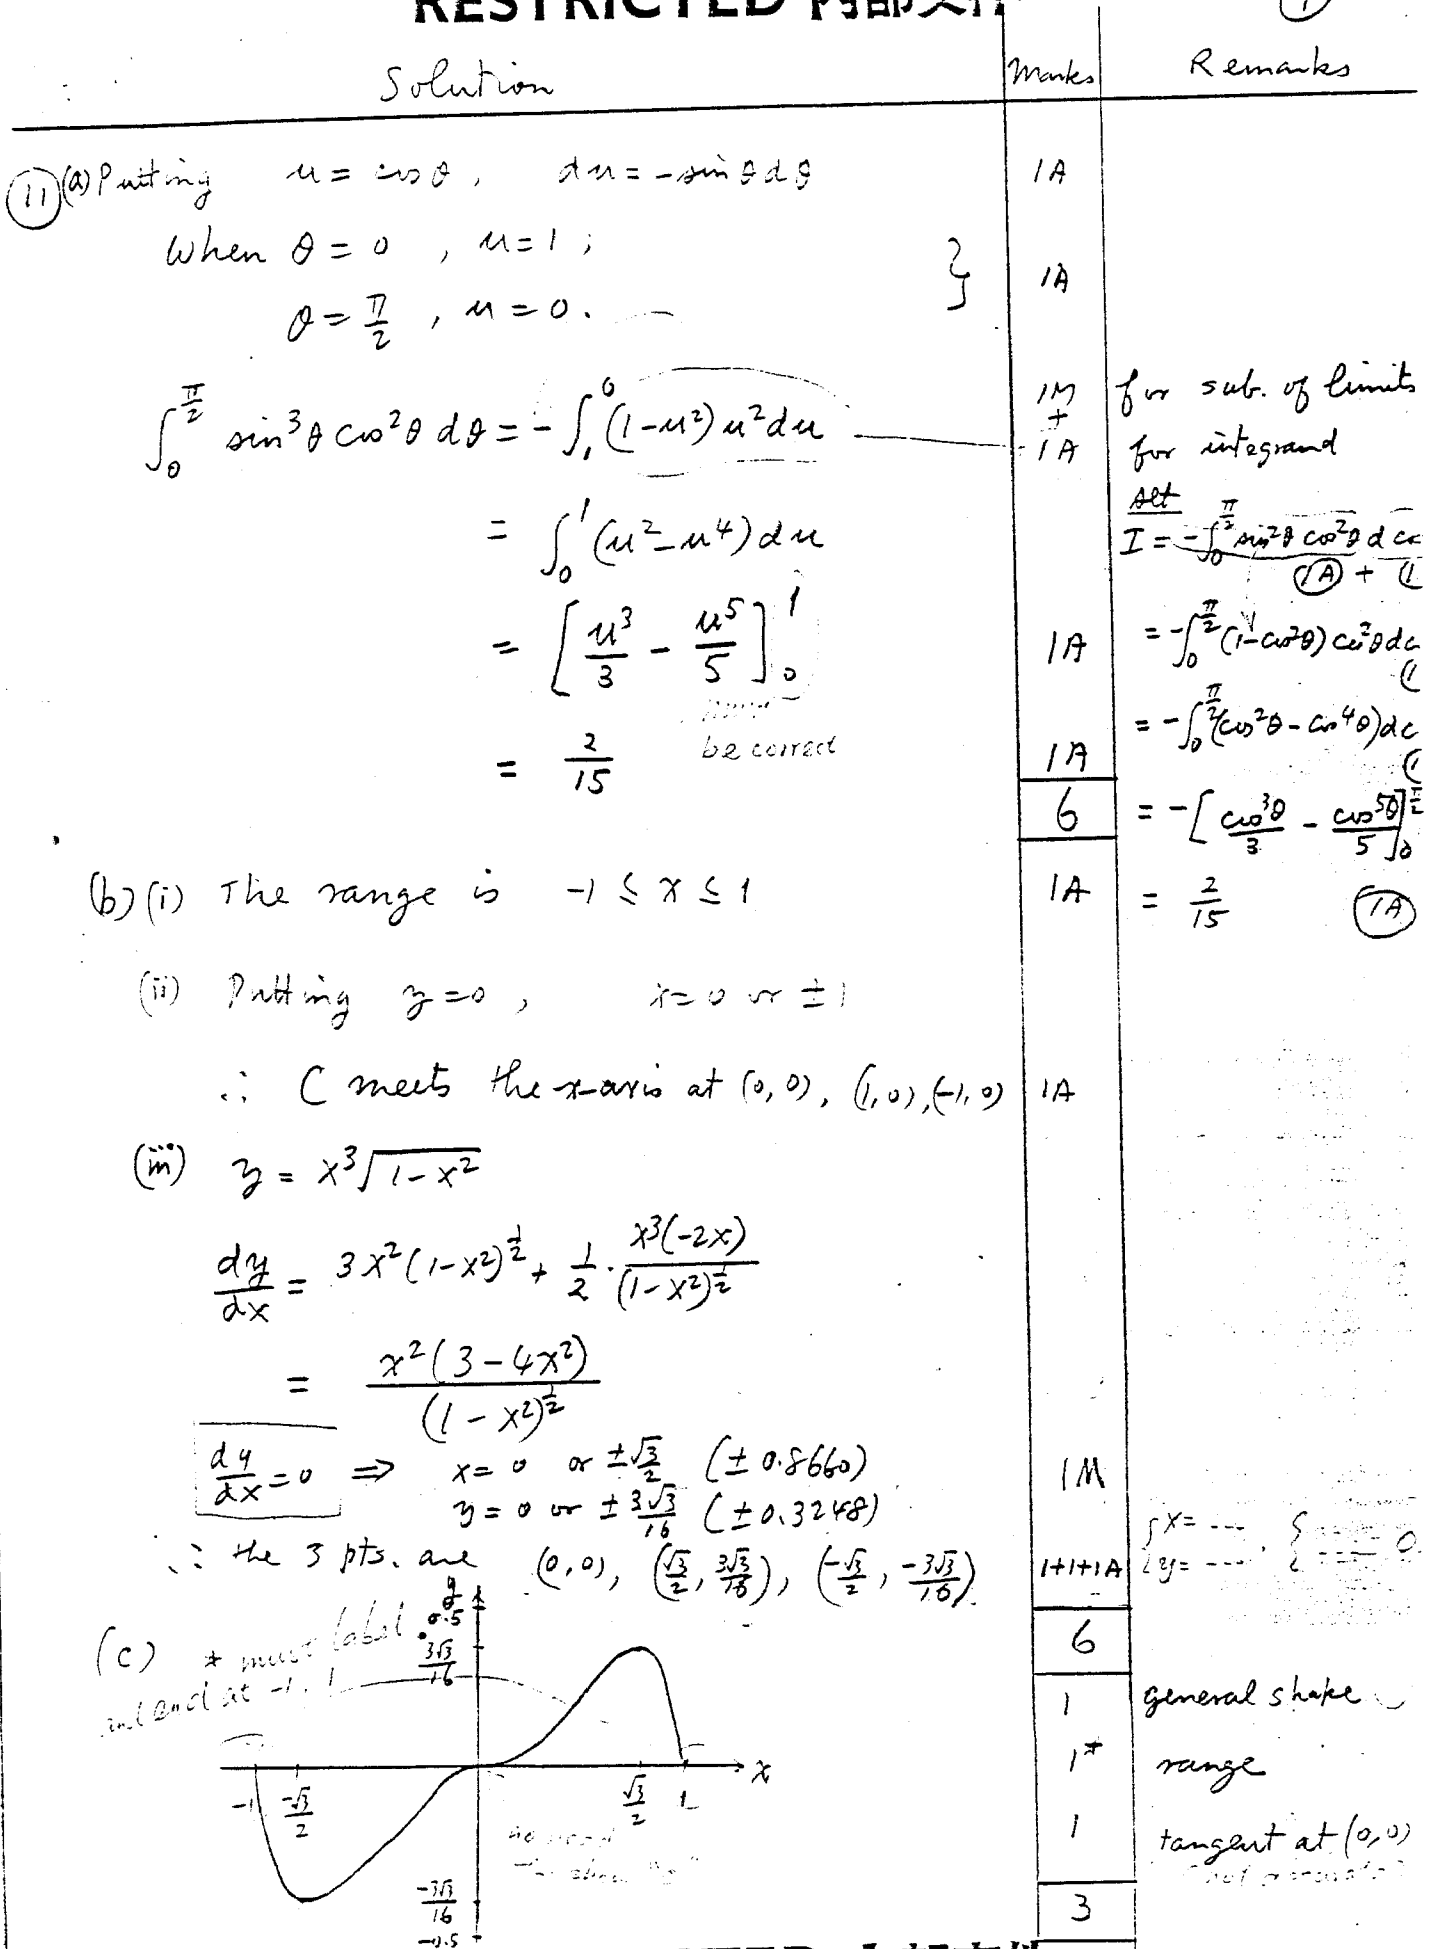 RESTRICTED 内部文件
Solution Marks Remarks
(11) (a) Putting u = cos θ, du = -sin θ dθ 1A
When θ = 0, u = 1;
θ = π/2, u = 0. } 1A
∫₀^(π/2) sin³θ cos²θ dθ = -∫₁⁰ (1-u²) u² du 1M + 1A
for sub. of limits
for integrand
= ∫₀¹ (u² - u⁴) du
= [u³/3 - u⁵/5]₀¹ 1A
be correct
= 2/15 1A
6
alt
I = -∫₀^(π/2) sin²θ cos²θ d
(1A) +
= -∫₀^(π/2) (1-cos²θ) cos²θ d
= -∫₀^(π/2) (cos²θ - cos⁴θ) d
= -[cos³θ/3 - cos⁵θ/5]₀^(π/2)
= 2/15 (1A)
(b) (i) The range is -1 ≤ x ≤ 1 1A
(ii) Putting y = 0, x = 0 or ±1
∴ C meets the x-axis at (0, 0), (1, 0), (-1, 0) 1A
(iii) y = x³√(1-x²)
dy/dx = 3x²(1-x²)^(1/2) + 1/2 · x³(-2x)/(1-x²)^(1/2)
= x²(3-4x²)/(1-x²)^(1/2)
dy/dx = 0 ⇒ x = 0 or ±√3/2 (±0.8660) 1M
y = 0 or ±3√3/16 (±0.3248)
{x= ---, {
{y= ---- {
∴ the 3 pts. are (0,0), (√3/2, 3√3/16), (-√3/2, -3√3/16) 1+1+1A
6
(c) * must label
and end at -1, 1
y
0.5
3√3/16
-1 -√3/2 √3/2 1 x
-3√3/16
-0.5
1 general shape
1* range
1 tangent at (0,0)
3